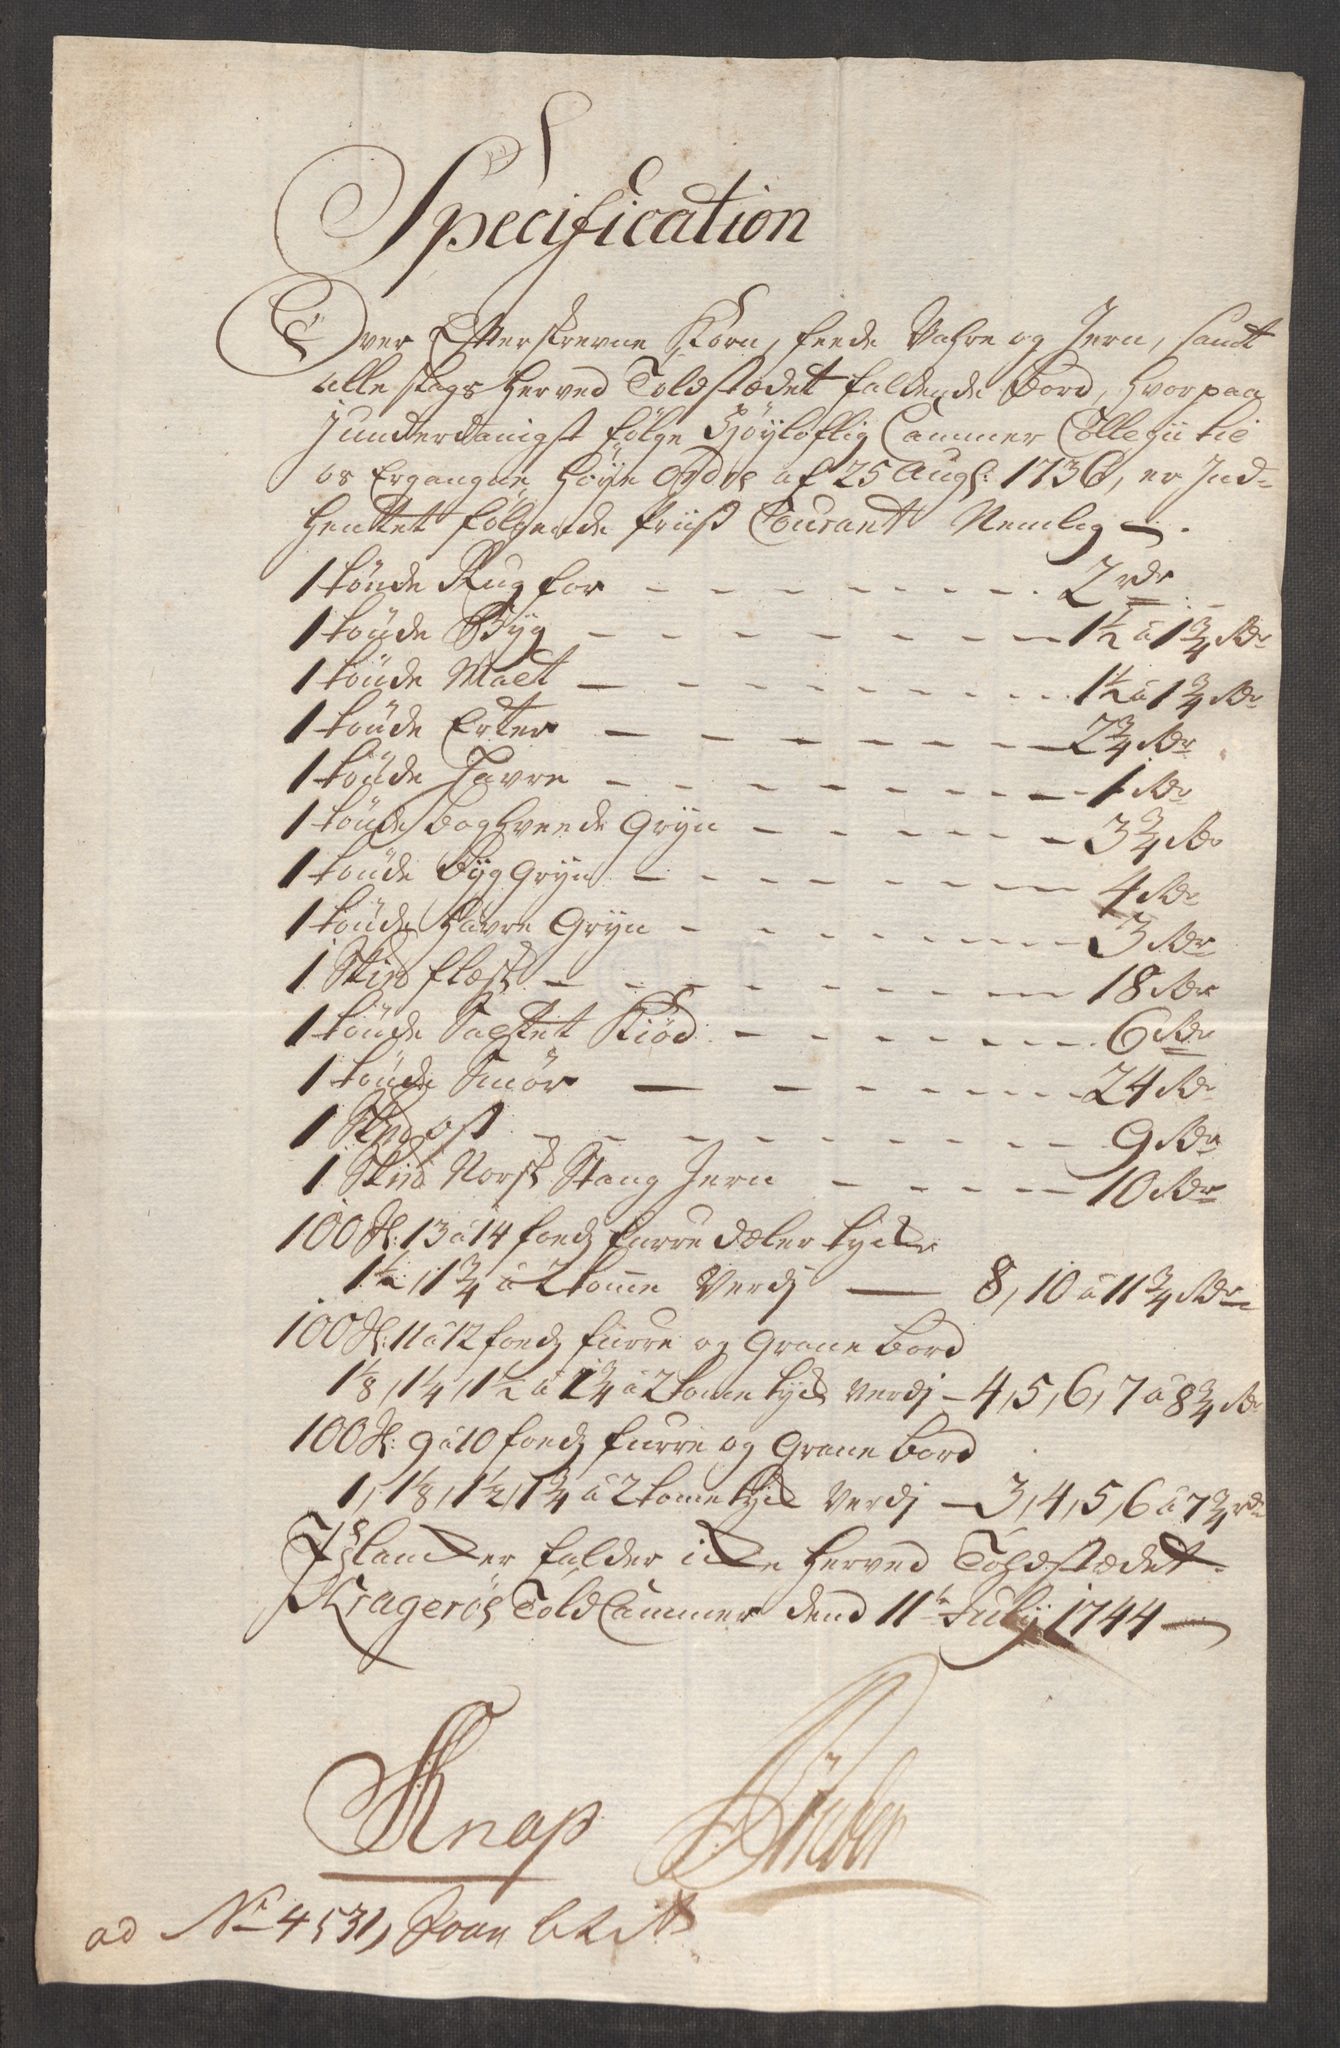 Specification
Over Efterskrevne Korn, feede Vahre og Jern, samt
alle slags herved Toldstædet faldende Bord, hvorpaa
J underdanigst følge Høyloflig Cammer Collegii til
os Ergangne høye Ordre af 25 Augs: 1736, er Jnd-
hentet følgende Priiss Courant Nemlig -
1 tønde Rug for - - - - - - 2 rdr
1 tønde Byg - - - - - - 1½ a 1¾ Rdr
1 tønde Malt - - - - - - 1½ a 1¾ Rdr
1 tønde Erter - - - - - - 2¾ Rdr
1 tønde Havre - - - - - - 1 Rdr
1 tønde Boghveede Gryn - - - - - 3¾ Rdr
1 tønde Byg Gryn - - - - - - 4 Rdr
1 tønde Havre Gryn - - - - - - 3 Rdr
1 Skpd flesk - - - - - - 18 Rdr
1 tønde Saltet Kiød - - - - - 6 Rdr
1 tønde Smør - - - - - 24 Rdr
1 Skpd ost - - - - - - 9 Rdr
1 Skpd Norsk Stang Jern - - - - 10 Rdr
100 St: 13 a 14 foed furre dæler tycke
1½, 1¾ a 2 tomme Verdj - 8, 10 a 11¾ Rdr
100 St: 11 a 12 foed furre og Grane bord
1⅛, 1¼, 1½ a 1¾ a 2 tome tyck Verdj - 4, 5, 6, 7 a 8¾ Rdr
100 St: 9 a 10 foed furre og Grane bord
1, 1⅛, 1½, 1¾ a 2 tome tyck Verdj - 3, 4, 5, 6 a 7¾ rdr
falder icke herved Toldstædet.
Kragerøe Told Cammer dend 11te July 1744
Knap
ad No 4531,